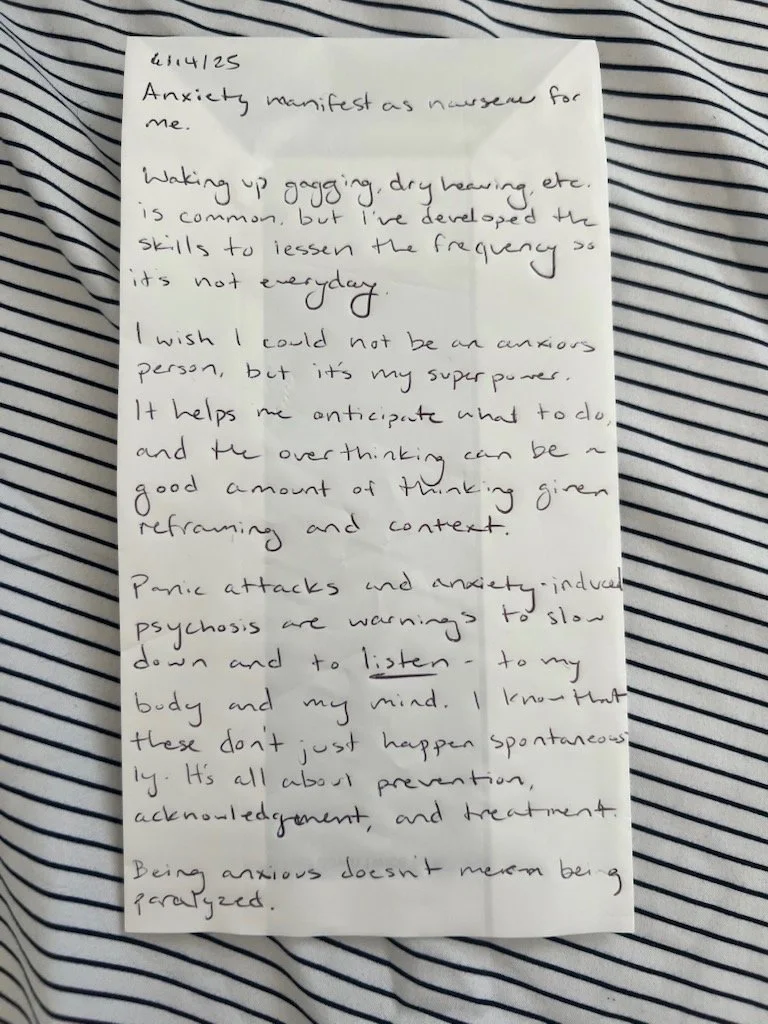 4/14/25
Anxiety manifest as nausea for
me.
Waking up gagging, dry heaving, etc.
is common, but I've developed the
skills to lessen the frequency so
it's not everyday.
I wish I could not be an anxious
person, but it's my superpower.
It helps me anticipate what to do,
and the overthinking can be a
good amount of thinking given
reframing and context.
Panic attacks and anxiety-induced
psychosis are warnings to slow
down and to listen - to my
body and my mind. I know that
these don't just happen spontaneous
ly. It's all about prevention,
acknowledgement, and treatment.
Being anxious doesn't mean being
paralyzed.